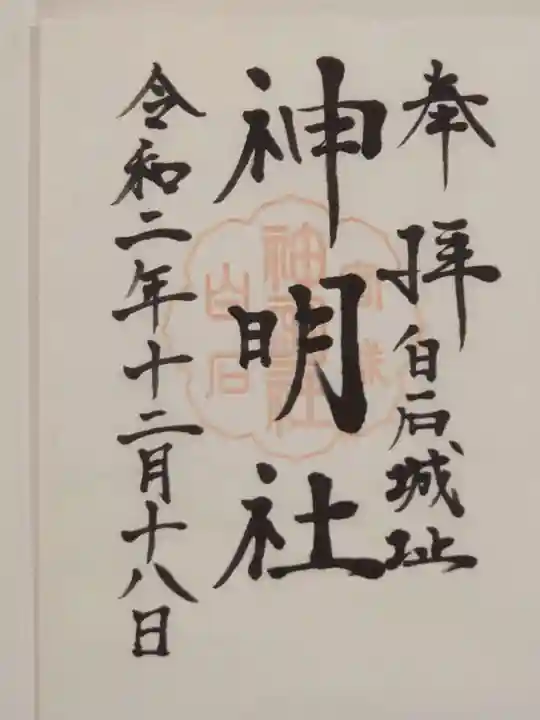 奉拝
白石城址
神明社
令和二年十二月十八日
神明社
白石